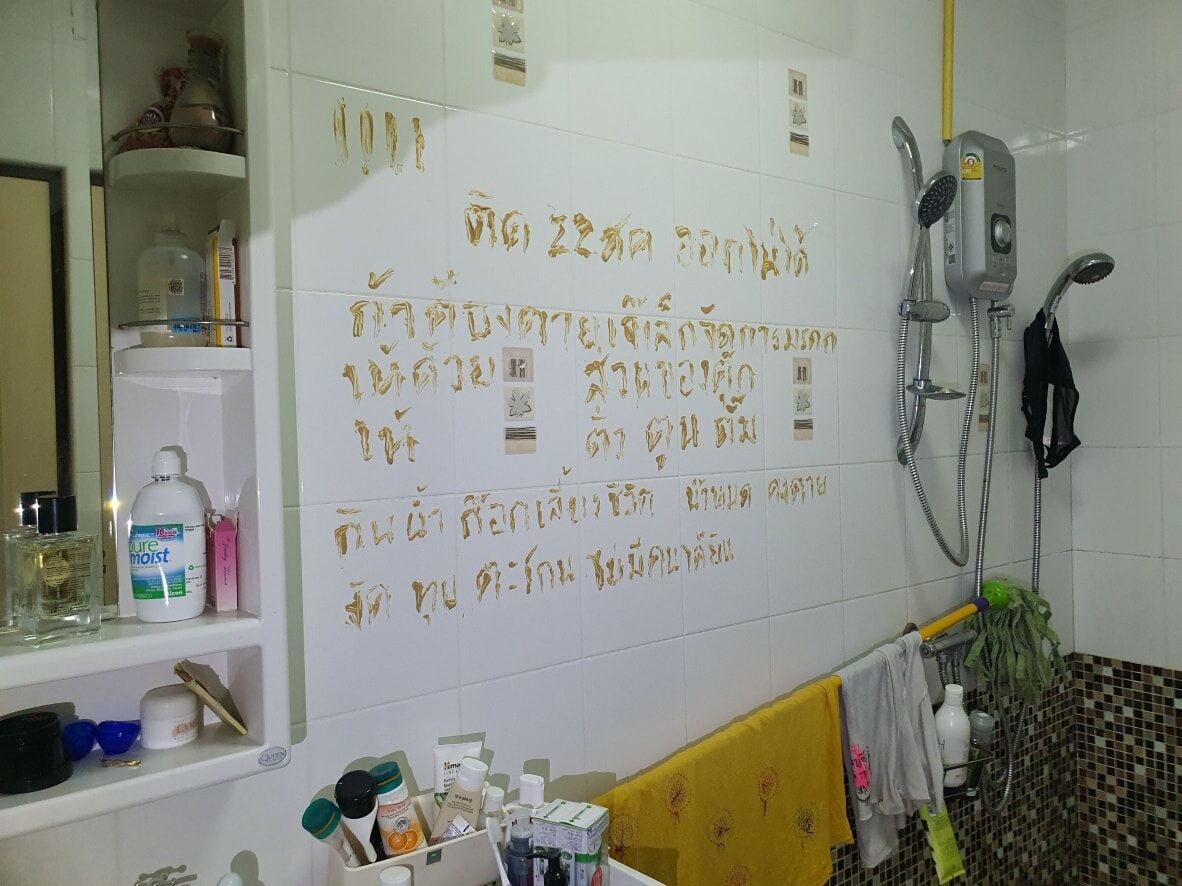 ติด 22สค ออกไม่ได้
ถ้าต้องตายเจ๊เล็กจัดการมรดก
ให้ด้วย ส่วนของคุ๊ก
ให้ ตูน ตั้ม
กินน้ำ ก๊อกเลี้ยงชีวิต น้ำหมด คงตาย
งัด ทุบ ตะโกน ไม่มีคนได้ยิน
pure
moist
Alcon
QUEEN